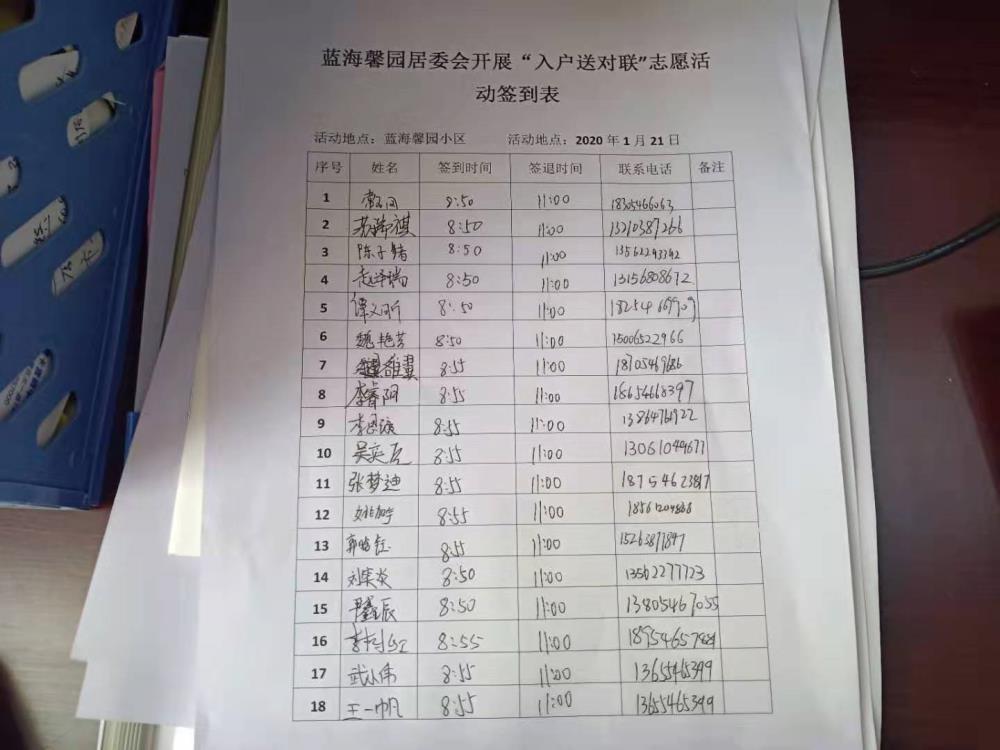 蓝海馨园居委会开展“入户送对联”志愿活
动签到表
活动地点：蓝海馨园小区 活动地点：2020 年 1 月 21 日
序号 姓名 签到时间 签退时间 联系电话 备注
1 8:50 11:00 18305466063
2 8:50 11:00 13210387266
3 陈子锗 8:50 11:00 13562293342
4 赵泽瑞 8:50 11:00 13156808672
5 8:50 11:00
6 魏艳芳 8:50 11:00 15006522966
7 8:55 11:00 18705469686
8 李睿阳 8:55 11:00 18654668397
9 8:55 11:00
10 吴奕辰 8:55 11:00 13061049677
11 张梦迪 8:55 11:00
12 8:55 11:00
13 8:55 11:00 15263877847
14 刘奕炎 8:50 11:00 13562277723
15 8:50 11:00 13805467055
16 8:55 11:00
17 武小伟 8:55 11:00 13655465399
18 王一帆 8:55 11:00 13655465399